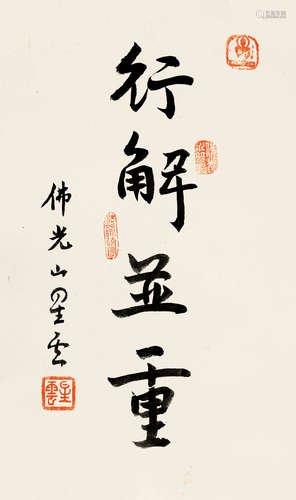 行解並重
佛光山星雲
星雲